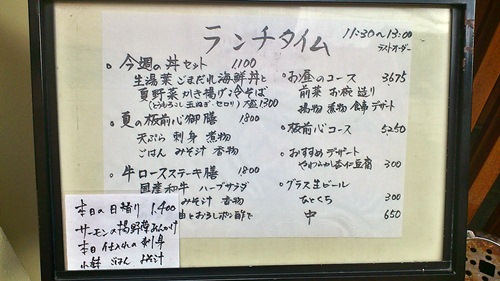 ランチタイム
11:30〜13:00
ラストオーダー
。今週の丼セット 1100
生湯葉ごまだれ海鮮丼と
夏野菜かき揚げ冷そば
(とうもろこし 玉ねぎ・セロリ) 大盛1300
。夏の板前心御膳 1800
天ぷら 刺身 煮物
ごはん みそ汁 香物
。牛ロースステーキ膳 1800
国産和牛 ハーブサラダ
みそ汁 香物
おろしポン酢で
。お昼のコース 3675
前菜 お椀 造り
揚物 煮物 食事 デザート
。板前心コース 5250
。おすすめデザート
やわらかし杏仁豆腐 300
。グラス生ビール
ひとくち 300
中 650
本日の日替り 1.400
サーモンの揚野菜あんかけ
本日仕入れの刺身
小鉢 ごはん みそ汁